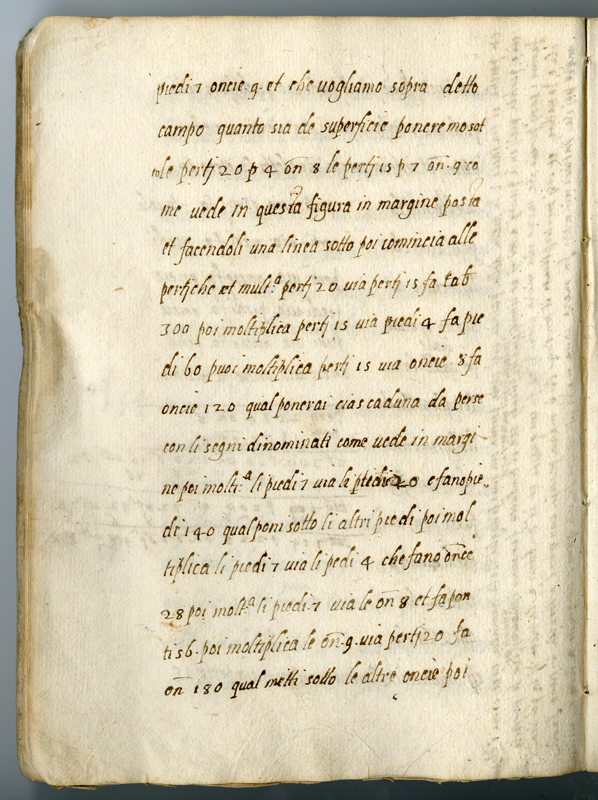 piedi 7 oncie 9. et che vogliamo sopra detto
campo quanto sia de superficie poneremo sot
to le pertj 20 p 4 on 8 le pertj 15 p 7 on. 9 co
me vede in questa figura in margine posta
et facendoli una linea sotto poi comincia alle
pertiche et mult.a pertj 20 via pertj 15 fa tab
300 poi moltiplica pertj 15 via piedi 4 fa pie
di 60 puoi moltiplica pertj 15 via oncie 8 fa
oncie 120 qual ponerai ciascaduna da perse
con li segni dinominati come vede in margi
ne poi molti.a li piedi 7 via li 20 e fano pie
di 140 qual poni sotto li altri piedi poi mol
tiplica li piedi 7 via li pedi 4 che fano once
28 poi molt.a li piedi. 7 via le on 8 et fa pon
ti 56. poi moltiplica le on. 9. via pertj 20 fa
on 180 qual metti sotto le altre oncie poi